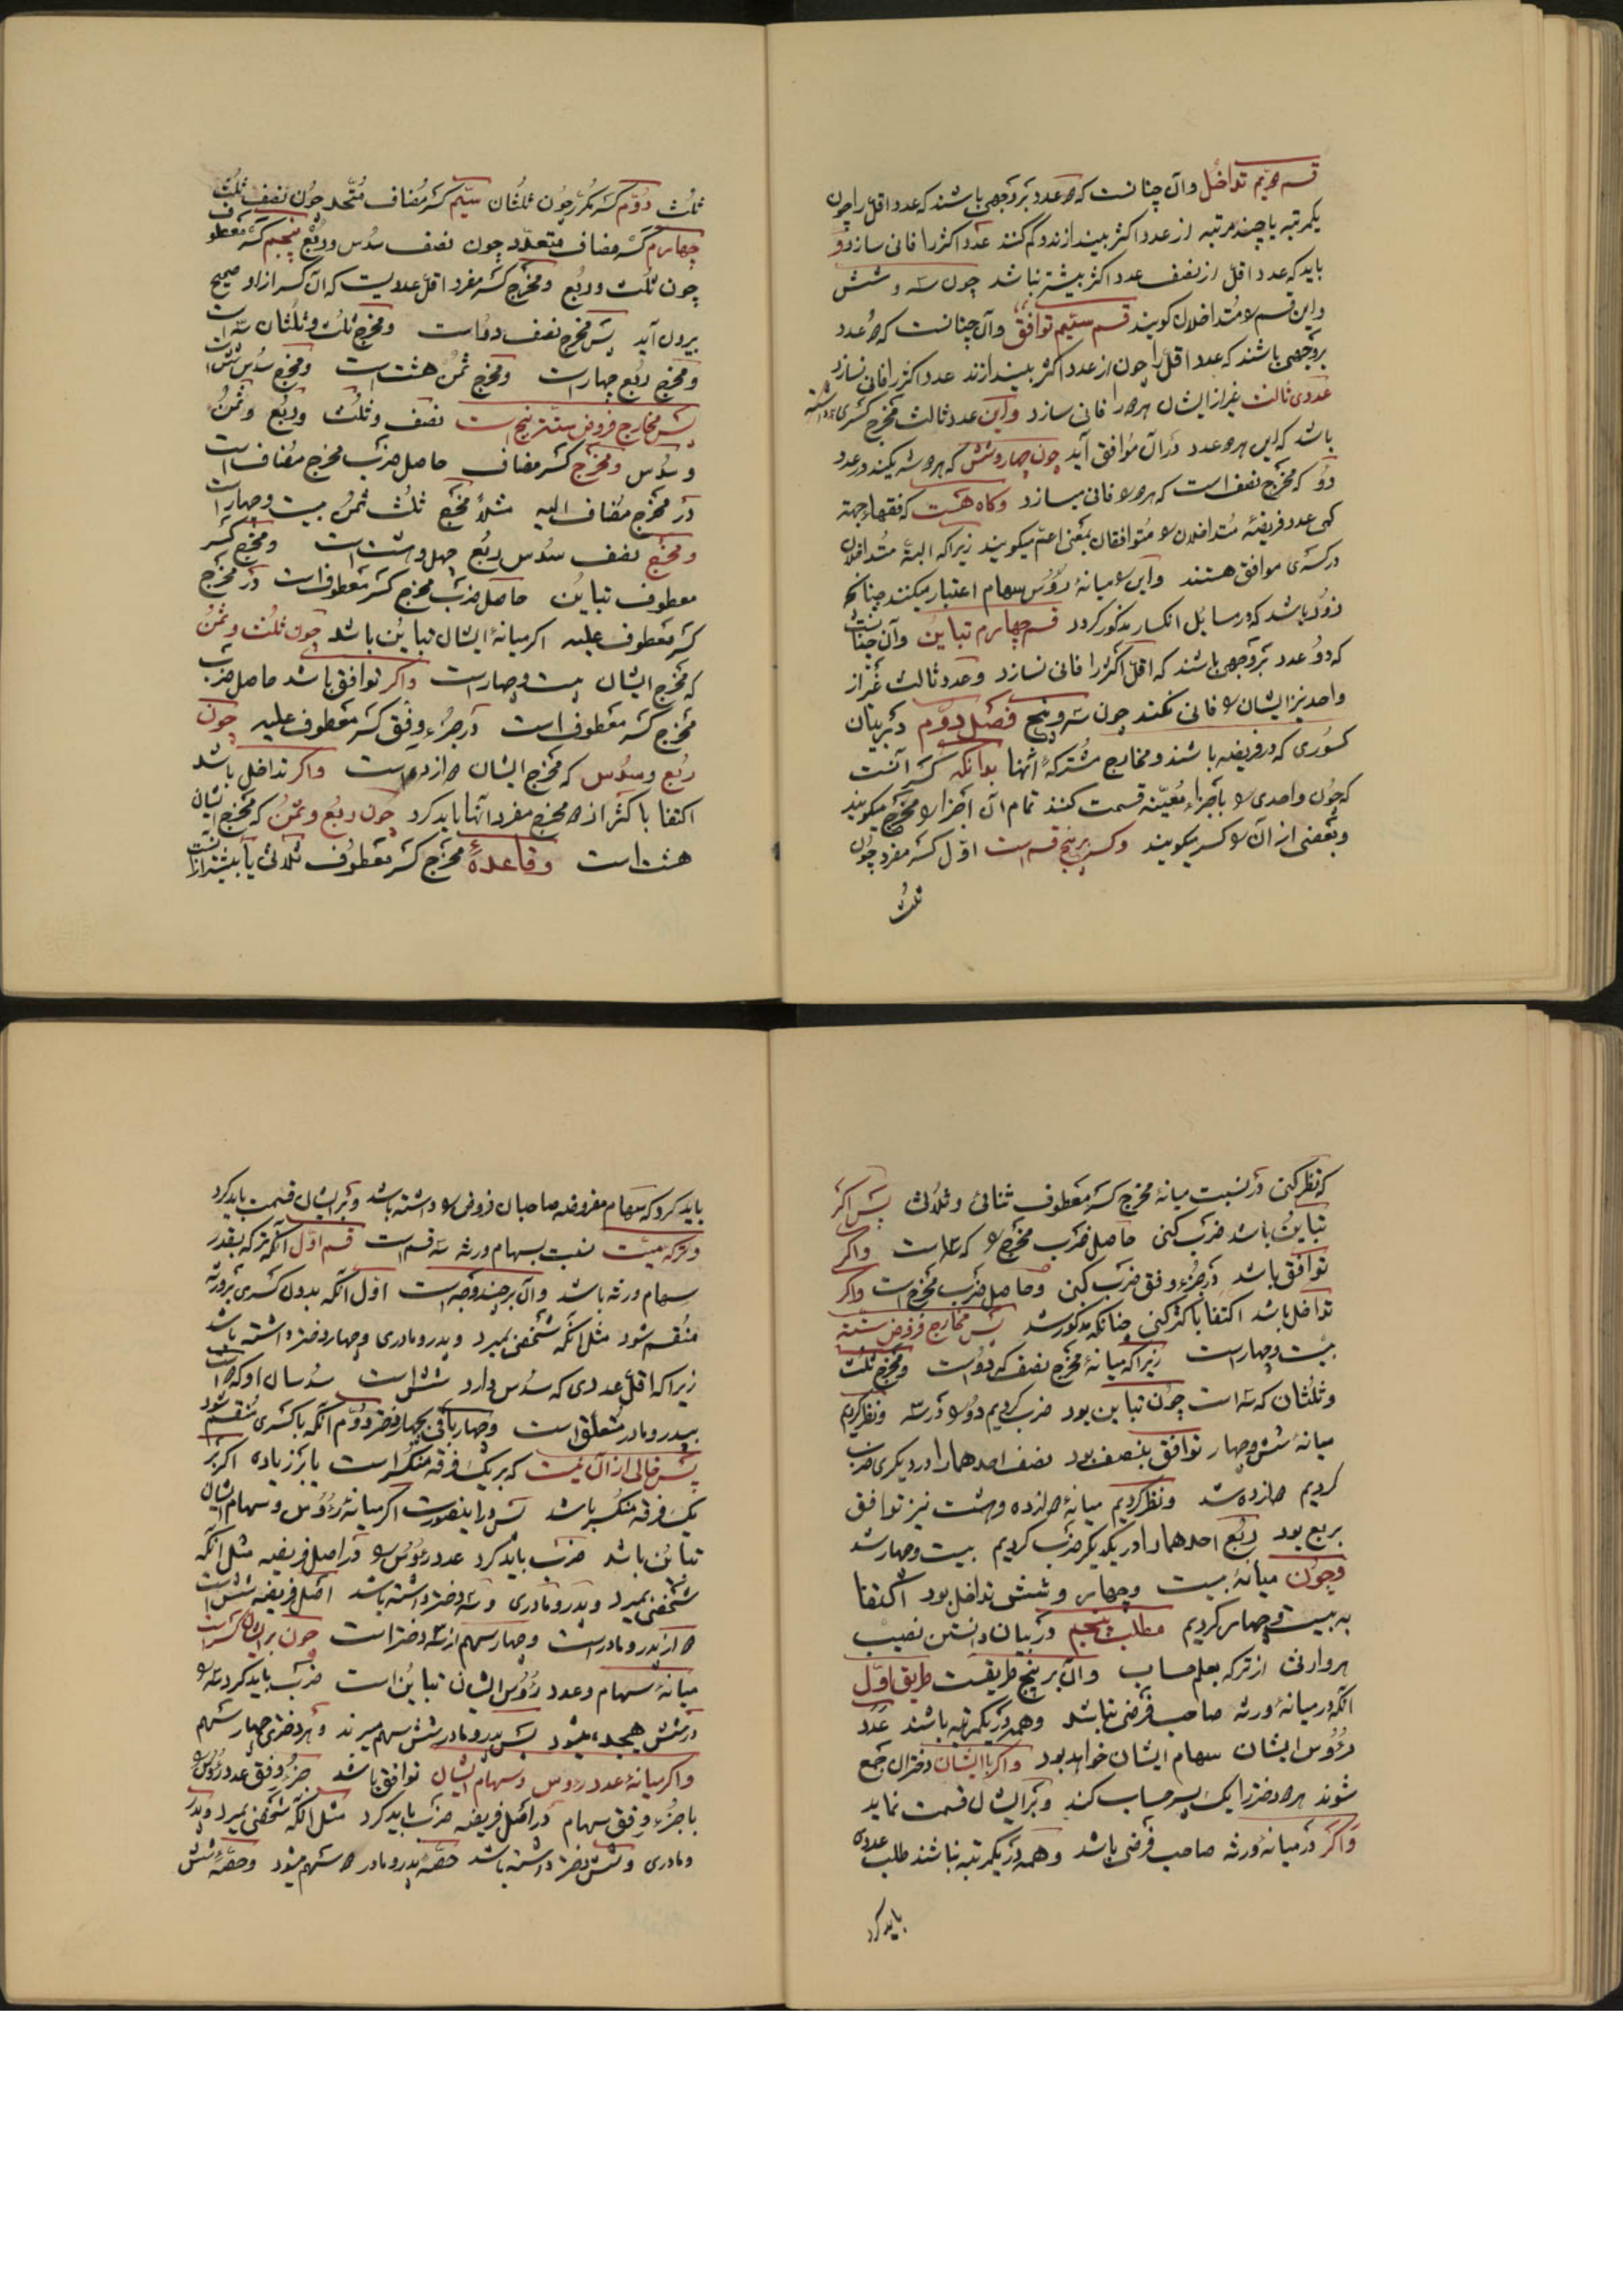 قسم دویم تداخل وآن چنانست که دو عدد بروجهی باشند که عدد اقل را چون
یکمرتبه یا چند مرتبه از عدد اکثر بیندازند و کم کنند عدد اکثر را فانی سازد و
باید که عدد اقل از نصف عدد اکثر بیشتر نباشد چون سه و شش
واین قسم را متداخلان کویند قسم سیّم توافق وآن چنانست که دو عدد
بروجهی باشند که عدد اقل را چون از عدد اکثر بیندازند عدد اکثر را فانی نسازد
عددی ثالث غیر از ایشان هر دو را فانی سازد واین عدد ثالث مخرج کسری داشته
باشد که این هر دو عدد در آن موافق آید چون چهار وشش که هر دو شریکند در عدد
دو که مخرج نصف است که هر دو را فانی میسازد وکاه هست که فقهاء جهة
کمی عدد فریضه متداخلان را متوافقان بمعنی اعمّ میکویند زیرا که البتّه متداخلان
در کسری موافق هستند واین را میانهٔ رؤس سهام اعتبار میکنند چنانکه
زود باشد که در مسایل انکسار مذکور کردد قسم چهارم تباین وآن چنانست
که دو عدد بروجهی باشند که اقل اکثر را فانی نسازد وعدد ثالث غیر از
واحد نیز ایشان را فانی نکند چون سه وپنج فصل دوّم در بیان
کسوری که در فریضه باشند ومخارج مشترکهٔ آنها بدانکه کسر آنست
که چون واحدی را باجزاء معیّنه قسمت کنند تمام آن اجزا را مخرج میکویند
وبعضی از آن را کسر میکویند وکسر بر پنج قسم است اوّل کسر مفرد چون
ثلث
ثلث دوّم کسر مکرّر چون ثلثان سیّم کسر مضاف متّحد چون نصف ثلث
چهارم کسر مضاف متعدّد چون نصف سدس وربع پنجم کسر معطوف
چون ثلث وربع ومخرج کسر مفرد اقل عددیست که آن کسر از او صحیح
بیرون آید پس مخرج نصف دو است ومخرج ثلث وثلثان سه است
ومخرج ربع چهار است ومخرج ثمن هشت است ومخرج سدس شش است
پس مخارج فروض ستّه پنج است نصف وثلث وربع وثمن
وسدس ومخرج کسر مضاف حاصل ضرب مخرج مضاف است
در مخرج مضاف الیه مثلاً مخرج ثلث ثمن بیست وچهار است
ومخرج نصف سدس ربع چهل وهشت است ومخرج کسر
معطوف تباین حاصل ضرب مخرج کسر معطوف است در مخرج
کسر معطوف علیه اکر میانهٔ ایشان تباین باشد چون ثلث وثمن
که مخرج ایشان بیست وچهار است واکر توافق باشد حاصل ضرب
مخرج کسر معطوف است در جزء وفق کسر معطوف علیه چون
ربع وسدس که مخرج ایشان دوازده است واکر تداخل باشد
اکتفا باکثر از دو مخرج مفرد آنها باید کرد چون ربع وثمن که مخرج ایشان
هشت است وقاعدهٔ مخرج کسر معطوف ثلاثی یا بیشتر آنست
که نظر کنی در نسبت میانهٔ مخرج کسر معطوف ثنائی وثلاثی پس اکر
تباین باشد ضرب کنی حاصل ضرب مخرج را که است واکر
توافق باشد در جزء وفق ضرب کنی وحاصل ضرب مخرج است واکر
تداخل باشد اکتفا باکثر کنی چنانکه مذکور شد پس مخارج فروض ستّه
بیست وچهار است زیرا که میانهٔ مخرج نصف که دو است ومخرج ثلث
وثلثان که سه است چون تباین بود ضرب کردیم دو را در سه ونظر کردیم
میانهٔ شش وچهار توافق بنصف بود نصف احدهما را در دیکری ضرب
کردیم دوازده شد ونظر کردیم میانهٔ دوازده وهشت نیز توافق
بربع بود ربع احدهما را در یکدیکر ضرب کردیم بیست وچهار شد
وچون میانهٔ بیست وچهار وشش تداخل بود اکتفا
به بیست وچهار کردیم مطلب پنجم در بیان دانستن نصیب
هر وارثی از ترکه بعلم حساب وآن بر پنج طریقست طریق اوّل
آنکه در میانهٔ ورثه صاحب فرضی نباشد وهمه در یکمرتبه باشند عدد
رؤس ایشان سهام ایشان خواهد بود واکر با ایشان دختران جمع
شوند هر دو دختر را یک پسر حساب کنند وبر ایشان قسمت نماید
واکر در میانهٔ ورثه صاحب فرضی باشد وهمه در یکمرتبه نباشند طلب عددی
باید کرد
باید کرد که سهام مفروضه صاحبان فروض را داشته باشد وبر ایشان قسمت باید کرد
وترکه میّت نسبت بسهام ورثه سه قسم است قسم اوّل آنکه ترکه بقدر
سهام ورثه باشد وآن بر چند وجه است اوّل آنکه بدون کسری بر ورثه
منقسم شود مثل آنکه شخصی بمیرد وپدر ومادری وچهار دختر داشته باشد
زیرا که اقل عددی که سدس دارد شش است سدسان او که دو است
بپدر ومادر متعلق است وچهار باقی بچهار دختر دوّم آنکه باکسری منقسم شود
پس خالی از آن نیست که بر یک فرقه منکسر است یا بر زیاده اکر بر
یک فرقه منکسر باشد پس در اینصورت اکر میانهٔ رؤس وسهام ایشان
تباین باشد ضرب باید کرد عدد رؤس را در اصل فریضه مثل آنکه
شخصی بمیرد وپدر ومادری وسه دختر داشته باشد اصل فریضه شش است
دو از پدر ومادر است وچهار سهم از سه دختر است چون بر ایشان کسر است
میانهٔ سهام وعدد رؤس ایشان تباین است ضرب باید کرد سه را
در شش هیجده میشود پس پدر ومادر شش سهم میبرند وهر دختری چهار سهم
واکر میانهٔ عدد رؤس وسهام ایشان توافق باشد جزء وفق عدد رؤس را
باجزء وفق سهام در اصل فریضه ضرب باید کرد مثل آنکه شخصی بمیرد وپدر
ومادری وشش دختر داشته باشد حصّهٔ پدر ومادر دو سهم میشود وحصّهٔ شش